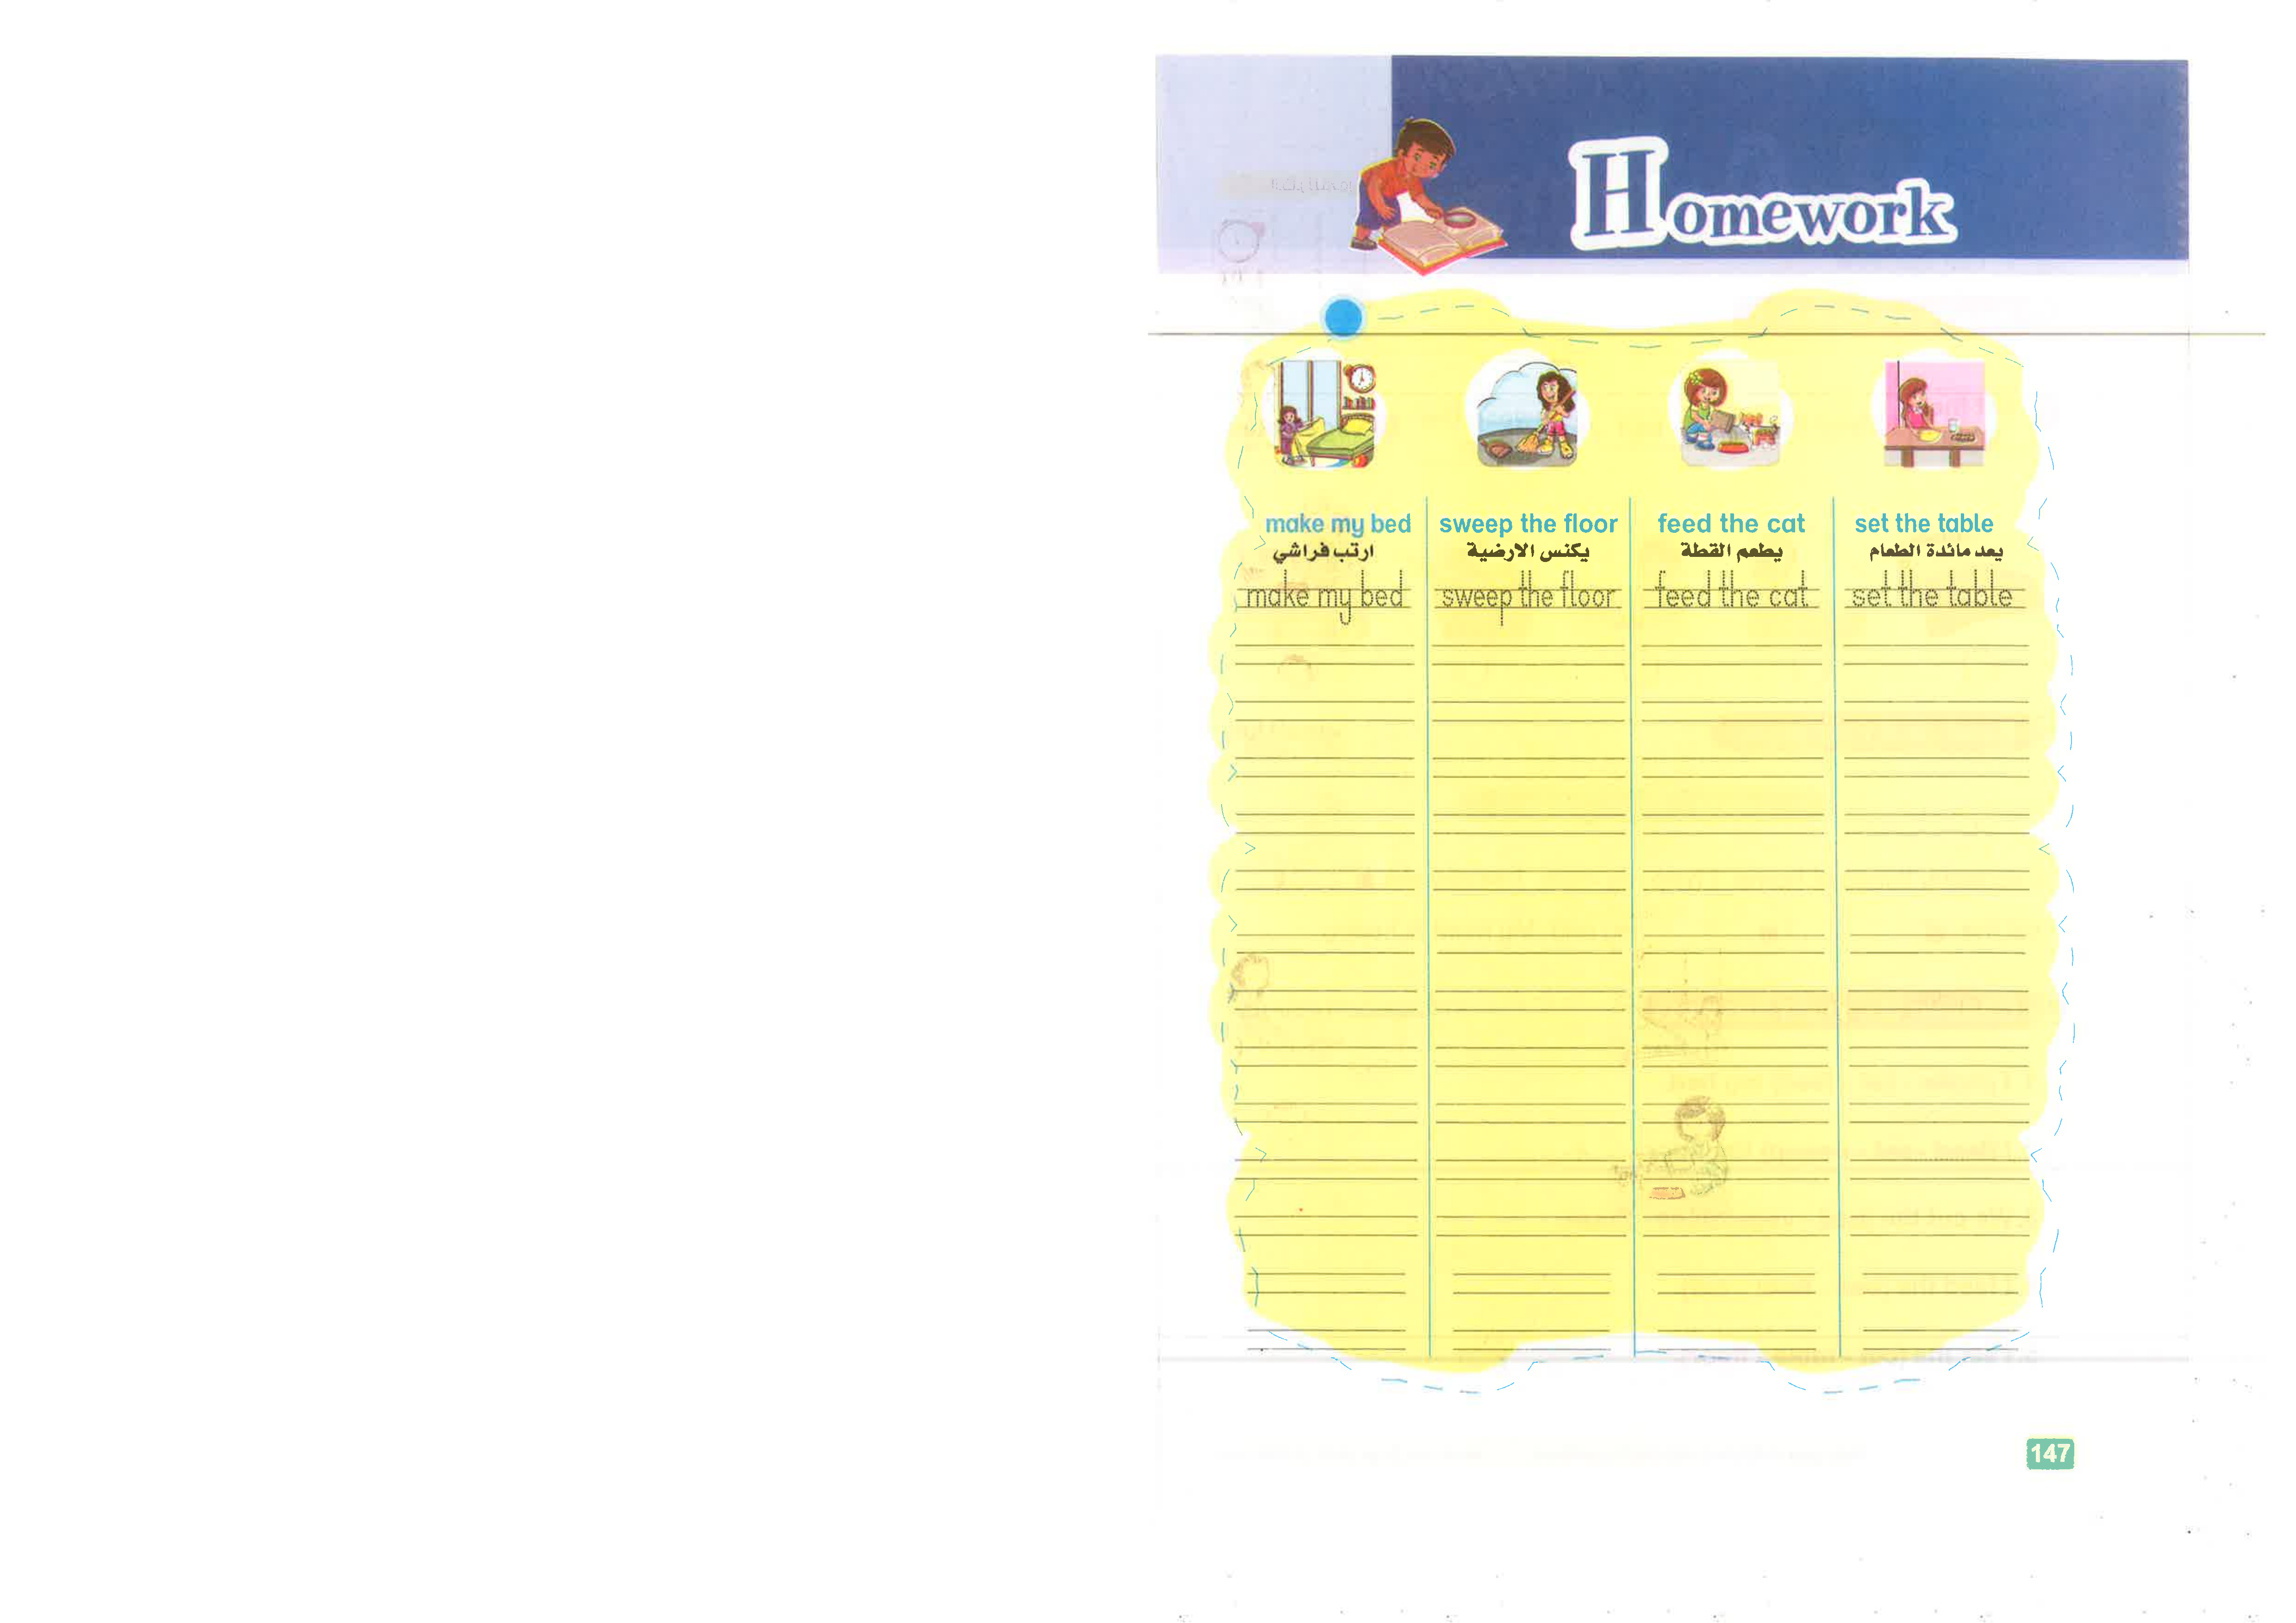 Homework
make my bed sweep the floor feed the cat set the table
ارتب فراشي يكنس الارضية يطعم القطة يعد مائدة الطعام
make my bed sweep the floor feed the cat set the table
147